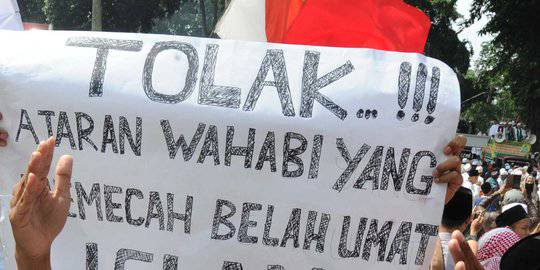 TOLAK...!!!
AJARAN WAHABI YANG
MEMECAH BELAH UMAT